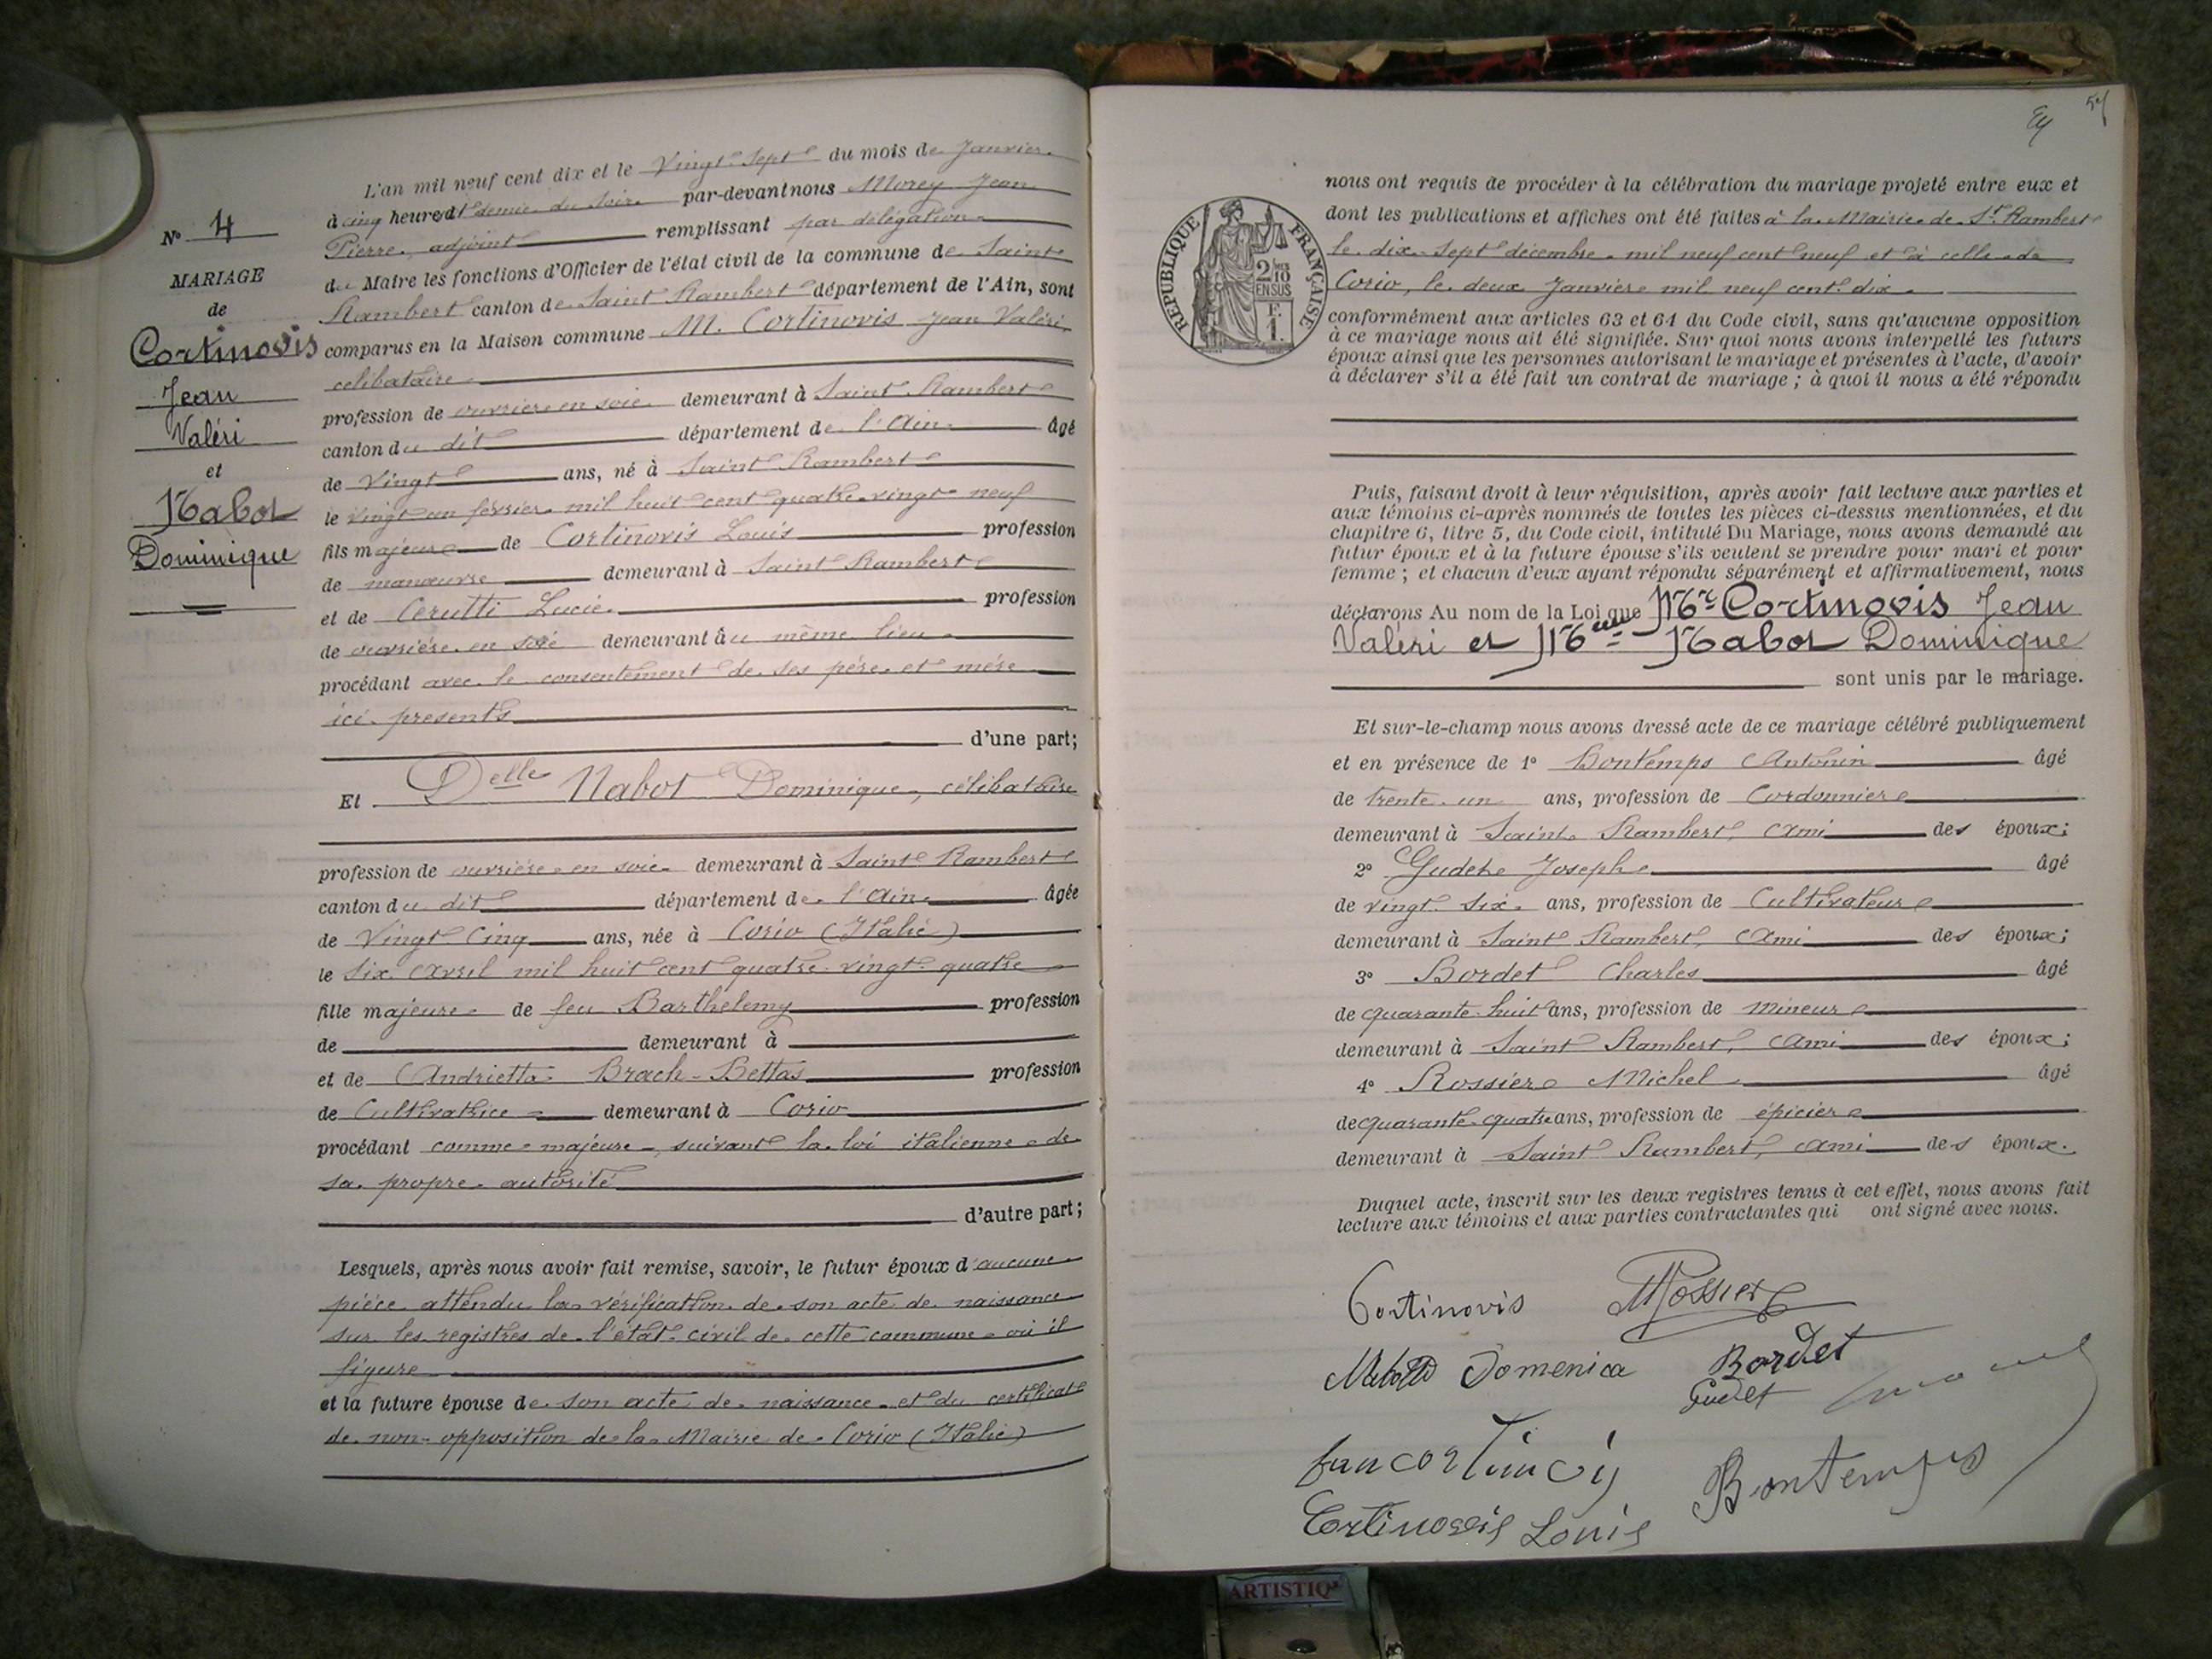 L'an mil neuf cent dix et le Vingt-Sept du mois de Janvier
à cinq heures et demie du soir par-devant nous Morey Jean
Pierre, adjoint remplissant par délégation
du Maire les fonctions d'Officier de l'état civil de la commune de Saint
Rambert canton de Saint Rambert département de l'Ain, sont
comparus en la Maison commune M. Cortinovis Jean Valéri
célibataire
profession de ouvrier en soie demeurant à Saint Rambert
canton du dit département de l'Ain âgé
de Vingt ans, né à Saint Rambert
le vingt un février mil huit cent quatre-vingt-neuf
fils majeur de Cortinovis Louis profession
de manœuvre demeurant à Saint Rambert
et de Cerutti Lucie profession
de ouvrière en soie demeurant au même lieu
procédant avec le consentement de ses père et mère
ici présents
d'une part;
Et Delle Nabot Dominique, célibataire
profession de ouvrière en soie demeurant à Saint Rambert
canton du dit département de l'Ain âgée
de Vingt Cinq ans, née à Corio (Italie)
le six Avril mil huit cent quatre-vingt-quatre
fille majeure de feu Barthélemy profession
de demeurant à
et de Andrietta Brach-Bettas profession
de Cultivatrice demeurant à Corio
procédant comme majeure, suivant la loi italienne de
sa propre autorité
d'autre part;
Lesquels, après nous avoir fait remise, savoir, le futur époux d'aucune
pièce attendu la vérification de son acte de naissance
sur les registres de l'état-civil de cette commune où il
figure
et la future épouse de son acte de naissance et du certificat
de non-opposition de la Mairie de Corio (Italie)
N° 4
MARIAGE
de
Cortinovis
Jean
Valéri
et
Nabot
Dominique
RÉPUBLIQUE FRANÇAISE
2/10
EN SUS
F.
1.
nous ont requis de procéder à la célébration du mariage projeté entre eux et
dont les publications et affiches ont été faites à la Mairie de St Rambert
le dix-sept décembre mil neuf cent neuf et à celle de
Corio, le deux Janvier mil neuf cent dix
conformément aux articles 63 et 64 du Code civil, sans qu'aucune opposition
à ce mariage nous ait été signifiée. Sur quoi nous avons interpellé les futurs
époux ainsi que les personnes autorisant le mariage et présentes à l'acte, d'avoir
à déclarer s'il a été fait un contrat de mariage ; à quoi il nous a été répondu
Puis, faisant droit à leur réquisition, après avoir fait lecture aux parties et
aux témoins ci-après nommés de toutes les pièces ci-dessus mentionnées, et du
chapitre 6, titre 5, du Code civil, intitulé Du Mariage, nous avons demandé au
futur époux et à la future épouse s'ils veulent se prendre pour mari et pour
femme ; et chacun d'eux ayant répondu séparément et affirmativement, nous
déclarons Au nom de la Loi que Mr Cortinovis Jean
Valéri et Melle Nabot Dominique
sont unis par le mariage.
Et sur-le-champ nous avons dressé acte de ce mariage célébré publiquement
et en présence de 1° Bontemps Antonin âgé
de trente-un ans, profession de Cordonnier
demeurant à Saint Rambert, ami des époux;
2° Gudet Joseph âgé
de vingt-six ans, profession de Cultivateur
demeurant à Saint Rambert, ami des époux;
3° Bordet Charles âgé
de quarante-huit ans, profession de mineur
demeurant à Saint Rambert, ami des époux;
4° Rossier Michel âgé
de quarante-quatre ans, profession de épicier
demeurant à Saint Rambert, ami des époux.
Duquel acte, inscrit sur les deux registres tenus à cet effet, nous avons fait
lecture aux témoins et aux parties contractantes qui ont signé avec nous.
Cortinovis MRossier
Domenica Bordet
Gudet
Bontemps
Cortinovis Louis
ARTISTIQ